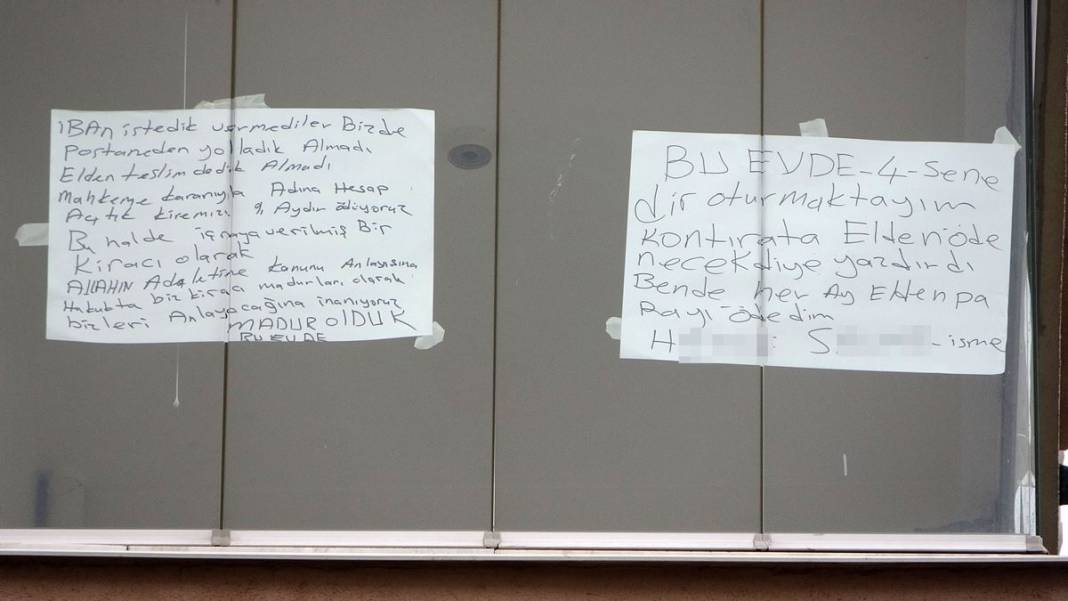 IBAN istedik vermediler Bizde
Postaneden yolladık Almadı
Elden teslim dedik Almadı
Mahkeme kararıyla Adına Hesap
Açtık kiremizi 9 Aydır ödiyoruz
Bu halde içraya verilmiş Bir
Kiracı olarak
ALLAHIN Adaletine kanunu Anlayısına
Hukukta biz kiracı madurları olarak
bizleri Anlayacağına inanıyoruz
MADUR OLDUK
BU EVDE
BU EVDE-4-Sene
dir oturmaktayım
kontırata Elden öde
necek diye yazdırdı
Bende her Ay Elden pa
Rayı ödedim
H S -isme